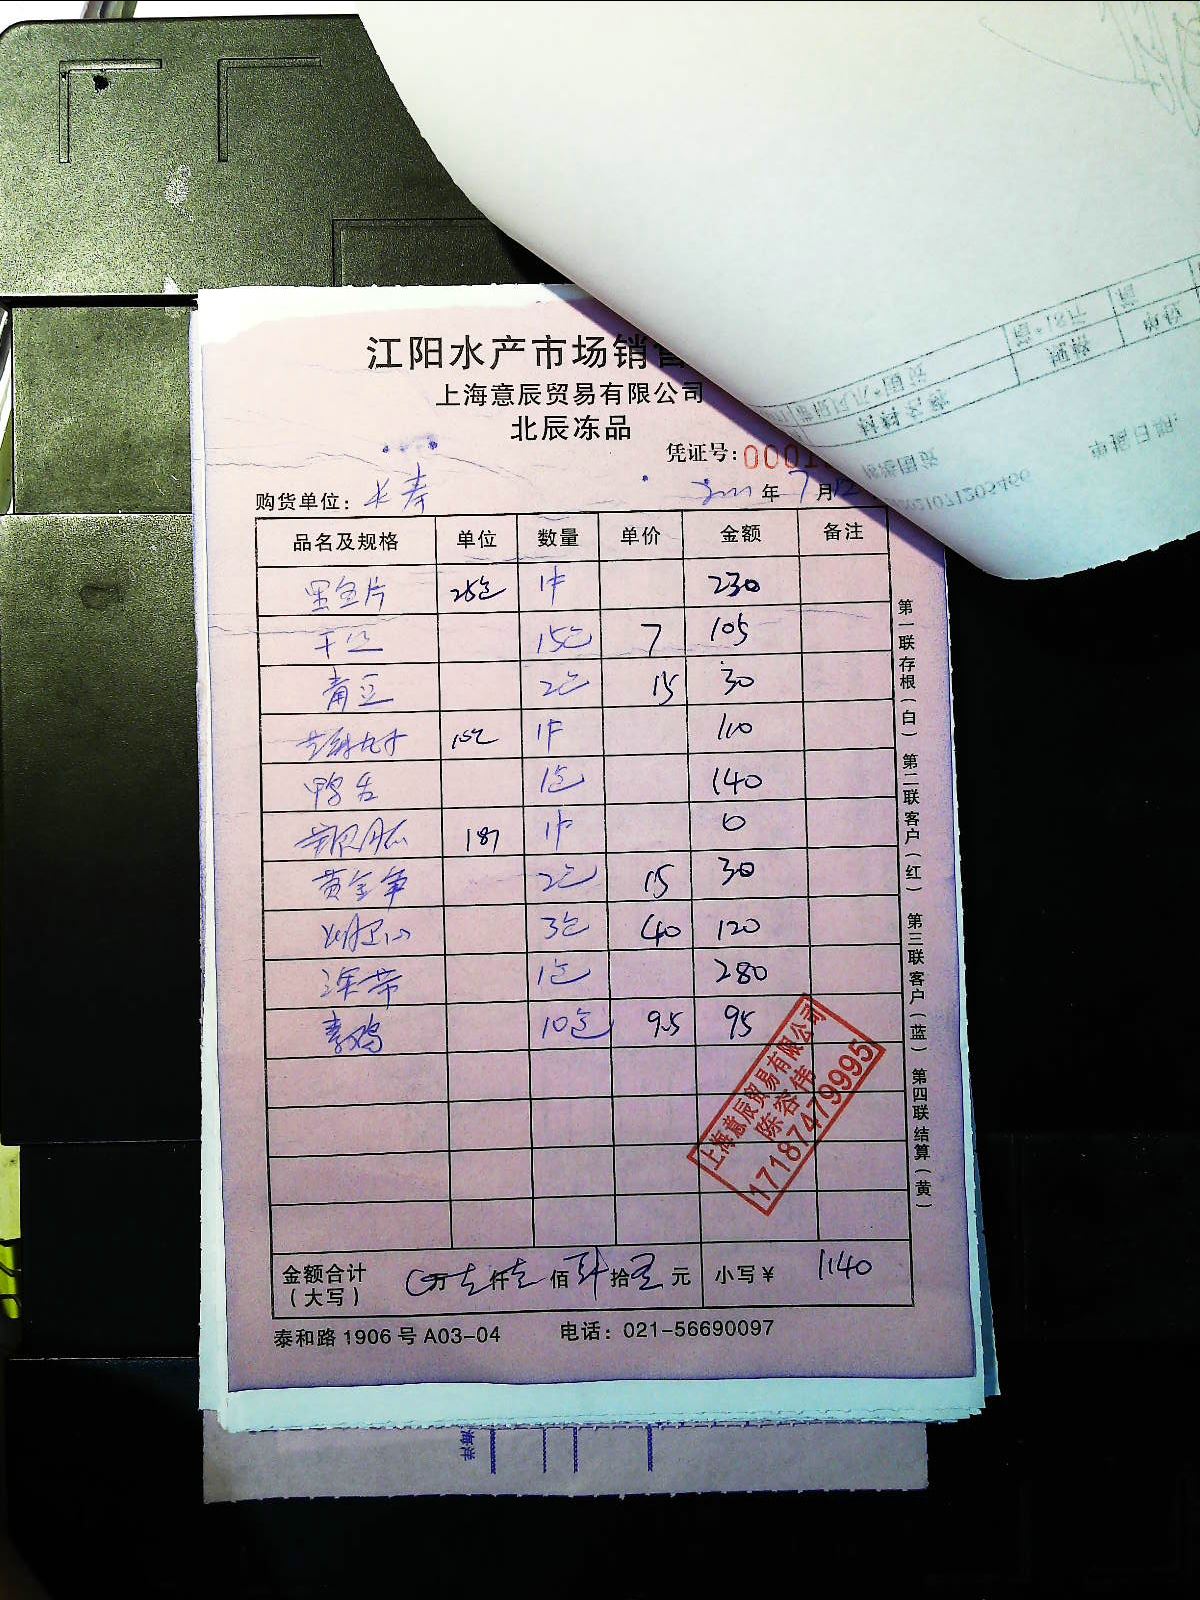 江阳水产市场销售
上海意辰贸易有限公司
北辰冻品
凭证号:0001
购货单位: 长寿 2021年7月12
品名及规格 单位 数量 单价 金额 备注
黑鱼片 25包 1件 230
干丝 15包 7 105
青豆 2包 15 30
10包 1件 110
鸭舌 1包 140
187 1件 0
黄金笋 2包 15 30
3包 40 120
1包 280
素鸡 10包 9.5 95
上海意辰贸易有限公司
陈容伟
17187479995
第一联存根(白) 第二联客户(红) 第三联客户(蓝) 第四联结算(黄)
金额合计(大写) 万壹仟壹佰肆拾零元 小写¥ 1140
泰和路1906号A03-04 电话: 021-56690097
海洋